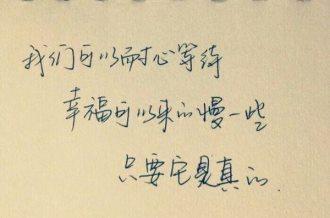 我们可以耐心等待
幸福可以来的慢一些
只要它是真的